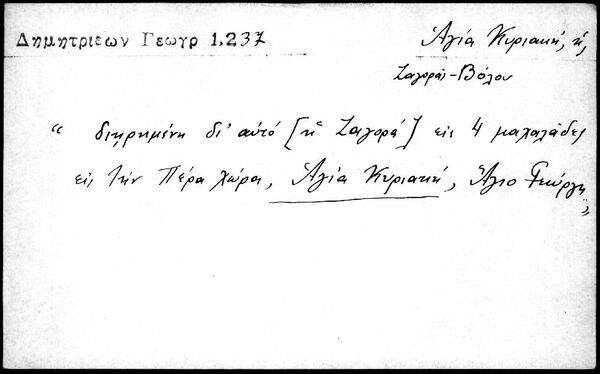 Δημητριεων Γεωγρ 1,237
Ἁγία Κυριακή, ἡ,
Ζαγορά - Βόλου
" διῃρημένη δι' αὐτό [ἡ Ζαγορά] εις 4 μαχαλάδες
εἰς τὴν Πέρα χώρα, Ἁγία Κυριακή, Ἅγιο Γεώργη
"